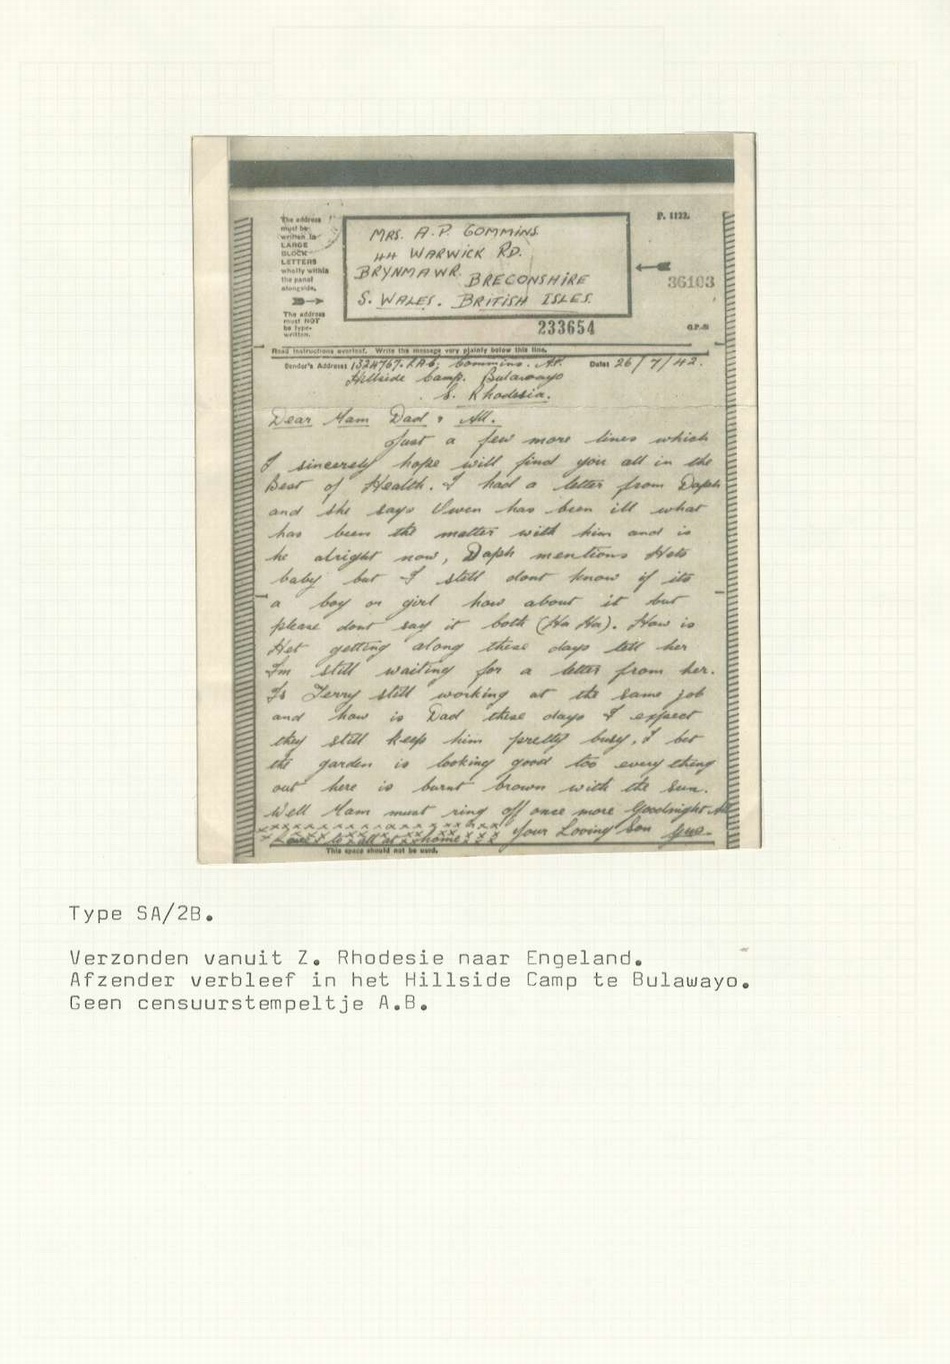 The address
must be
written in
LARGE
BLOCK
LETTERS
wholly within
the panel
alongside.
The address
must NOT
be type-
written.
MRS. A.P. GOMMINS
44 WARWICK RD.
BRYNMAWR. BRECONSHIRE
S. WALES. BRITISH ISLES.
P. 1122.
36103
233654
G.P.S
Read instructions overleaf. Write the message very plainly below this line.
Sender's Address 1324767. LAC, Gommins. A.P. Date: 26/7/42.
Hillside Camp. Bulawayo
S. Rhodesia.
Dear Mam Dad & All.
Just a few more lines which
I sincerely hope will find you all in the
Best of Health. I had a letter from Daph
and she says Owen has been ill what
has been the matter with him and is
he alright now, Daph mentions Hets
baby but I still dont know if its
a boy or girl how about it but
please dont say it both (Ha Ha). How is
Het getting along these days tell her
I'm still waiting for a letter from her.
Is Terry still working at the same job
and how is Dad these days I expect
they still keep him pretty busy. I bet
the garden is looking good too every thing
out here is burnt brown with the sun.
Well Mam must ring off once more Goodnight All
your Loving Son
Love to all at home
This space should not be used.
Type SA/2B.
Verzonden vanuit Z. Rhodesie naar Engeland.
Afzender verbleef in het Hillside Camp te Bulawayo.
Geen censuurstempeltje A.B.